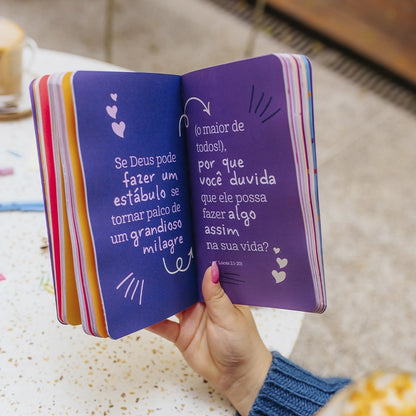 Se Deus pode
fazer um
estábulo se
tornar palco de
um grandioso
milagre
(o maior de
todos!),
por que
você duvida
que ele possa
fazer algo
assim
na sua vida?
Lucas 2.1-20